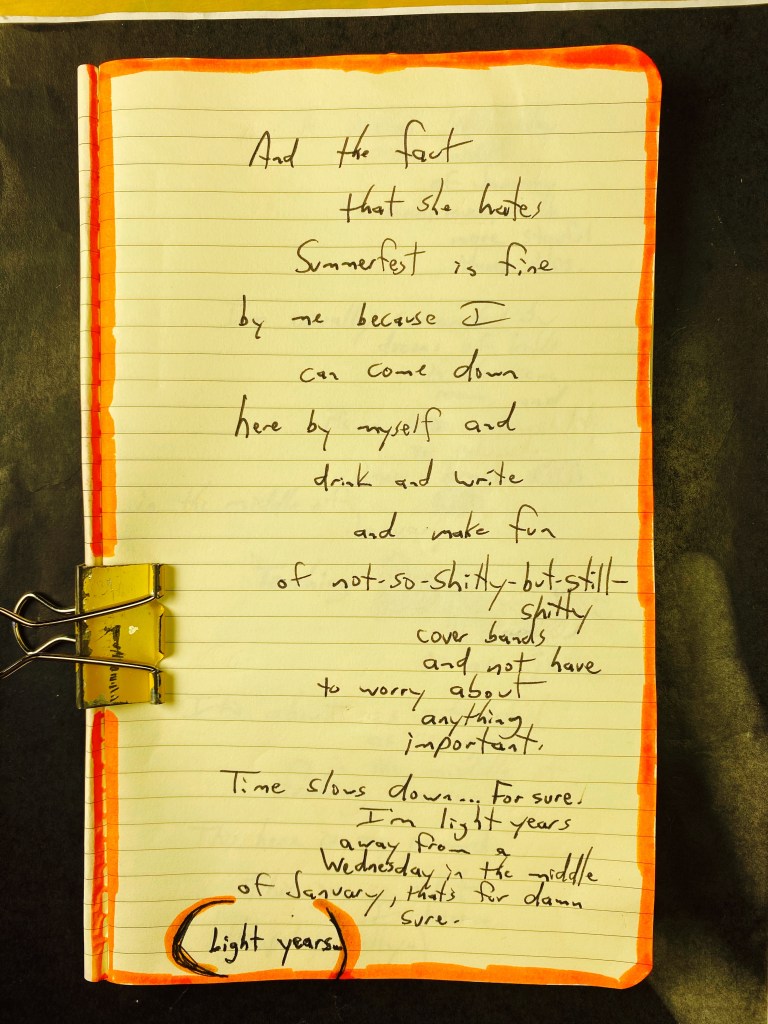 And the fact
that she hates
Summerfest is fine
by me because I
can come down
here by myself and
drink and write
and make fun
of not-so-shitty-but-still-
shitty
cover bands
and not have
to worry about
anything
important.
Time slows down... For sure.
I'm light years
away from a
Wednesday in the middle
of January, that's for damn
sure.
(Light years...)